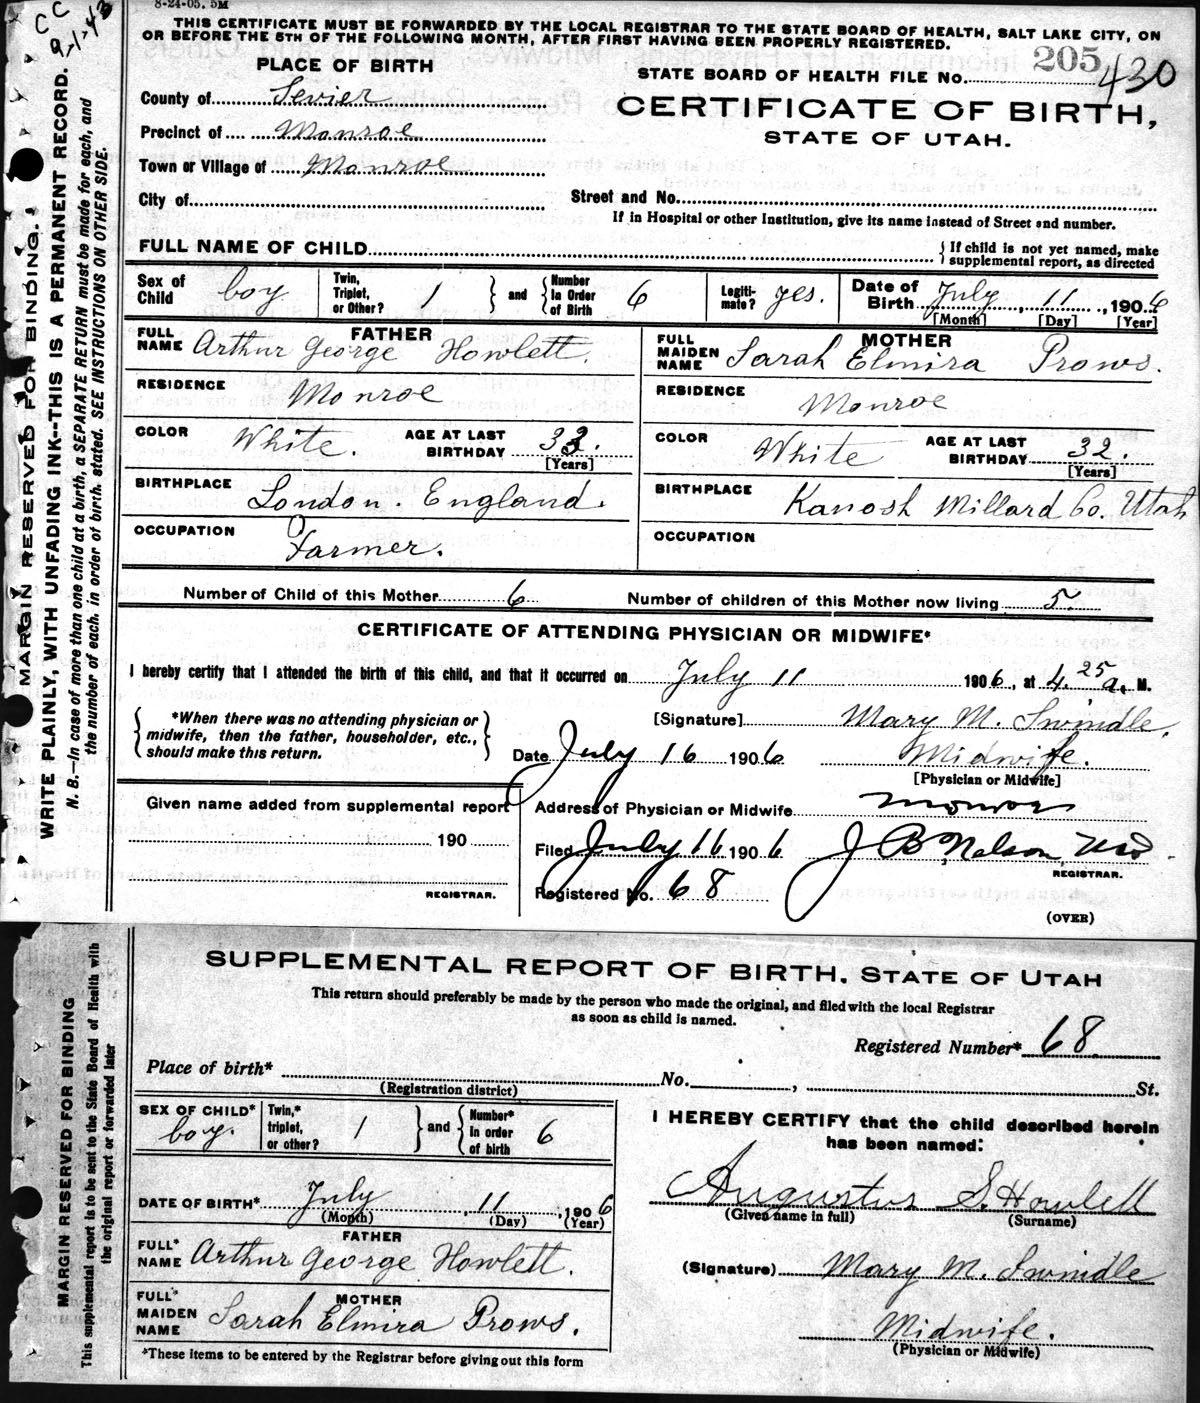 C C
9-1-43
8-24-05. 5M
THIS CERTIFICATE MUST BE FORWARDED BY THE LOCAL REGISTRAR TO THE STATE BOARD OF HEALTH, SALT LAKE CITY, ON
OR BEFORE THE 5TH OF THE FOLLOWING MONTH, AFTER FIRST HAVING BEEN PROPERLY REGISTERED.
PLACE OF BIRTH
STATE BOARD OF HEALTH FILE No. 205 430
County of Sevier
CERTIFICATE OF BIRTH,
Precinct of Monroe
STATE OF UTAH.
Town or Village of Monroe
City of
Street and No.
If in Hospital or other Institution, give its name instead of Street and number.
FULL NAME OF CHILD
{ If child is not yet named, make
supplemental report, as directed
Sex of Child boy
Twin, Triplet, or Other? 1
} and { Number In Order of Birth 6
Legiti- mate? yes.
Date of Birth July 11, 1906
[Month] [Day] [Year]
FATHER
FULL NAME Arthur George Howlett.
MOTHER
FULL MAIDEN NAME Sarah Elmira Prows.
RESIDENCE Monroe
RESIDENCE Monroe
COLOR White. AGE AT LAST BIRTHDAY 33. [Years]
COLOR White AGE AT LAST BIRTHDAY 32. [Years]
BIRTHPLACE London. England.
BIRTHPLACE Kanosh Millard Co. Utah
OCCUPATION Farmer.
OCCUPATION
Number of Child of this Mother 6
Number of children of this Mother now living 5.
CERTIFICATE OF ATTENDING PHYSICIAN OR MIDWIFE*
I hereby certify that I attended the birth of this child, and that it occurred on July 11 1906, at 4.25 a. M.
{ *When there was no attending physician or
midwife, then the father, householder, etc.,
should make this return. }
[Signature] Mary M. Swindle,
Date July 16 1906 Midwife.
[Physician or Midwife]
Given name added from supplemental report
190
REGISTRAR.
Address of Physician or Midwife Monroe
Filed July 16 1906 J B Nelson,
REGISTRAR.
Registered No. 68
(OVER)
MARGIN RESERVED FOR BINDING.
WRITE PLAINLY, WITH UNFADING INK--THIS IS A PERMANENT RECORD.
N. B.--In case of more than one child at a birth, a SEPARATE RETURN must be made for each, and
the number of each, in order of birth, stated. SEE INSTRUCTIONS ON OTHER SIDE.
SUPPLEMENTAL REPORT OF BIRTH. STATE OF UTAH
This return should preferably be made by the person who made the original, and filed with the local Registrar
as soon as child is named.
Registered Number* 68
Place of birth* No. , St.
(Registration district)
SEX OF CHILD* boy.
Twin,* triplet, or other? 1
} and { Number* In order of birth 6
I HEREBY CERTIFY that the child described herein
has been named:
Augustus S. Howlett
(Given name in full) (Surname)
DATE OF BIRTH* July 11, 1906
(Month) (Day) (Year)
FATHER
FULL* NAME Arthur George Howlett.
(Signature) Mary M. Swindle
MOTHER
FULL* MAIDEN NAME Sarah Elmira Prows.
Midwife.
(Physician or Midwife)
*These items to be entered by the Registrar before giving out this form
MARGIN RESERVED FOR BINDING
This supplemental report is to be sent to the State Board of Health with
the original report or forwarded later